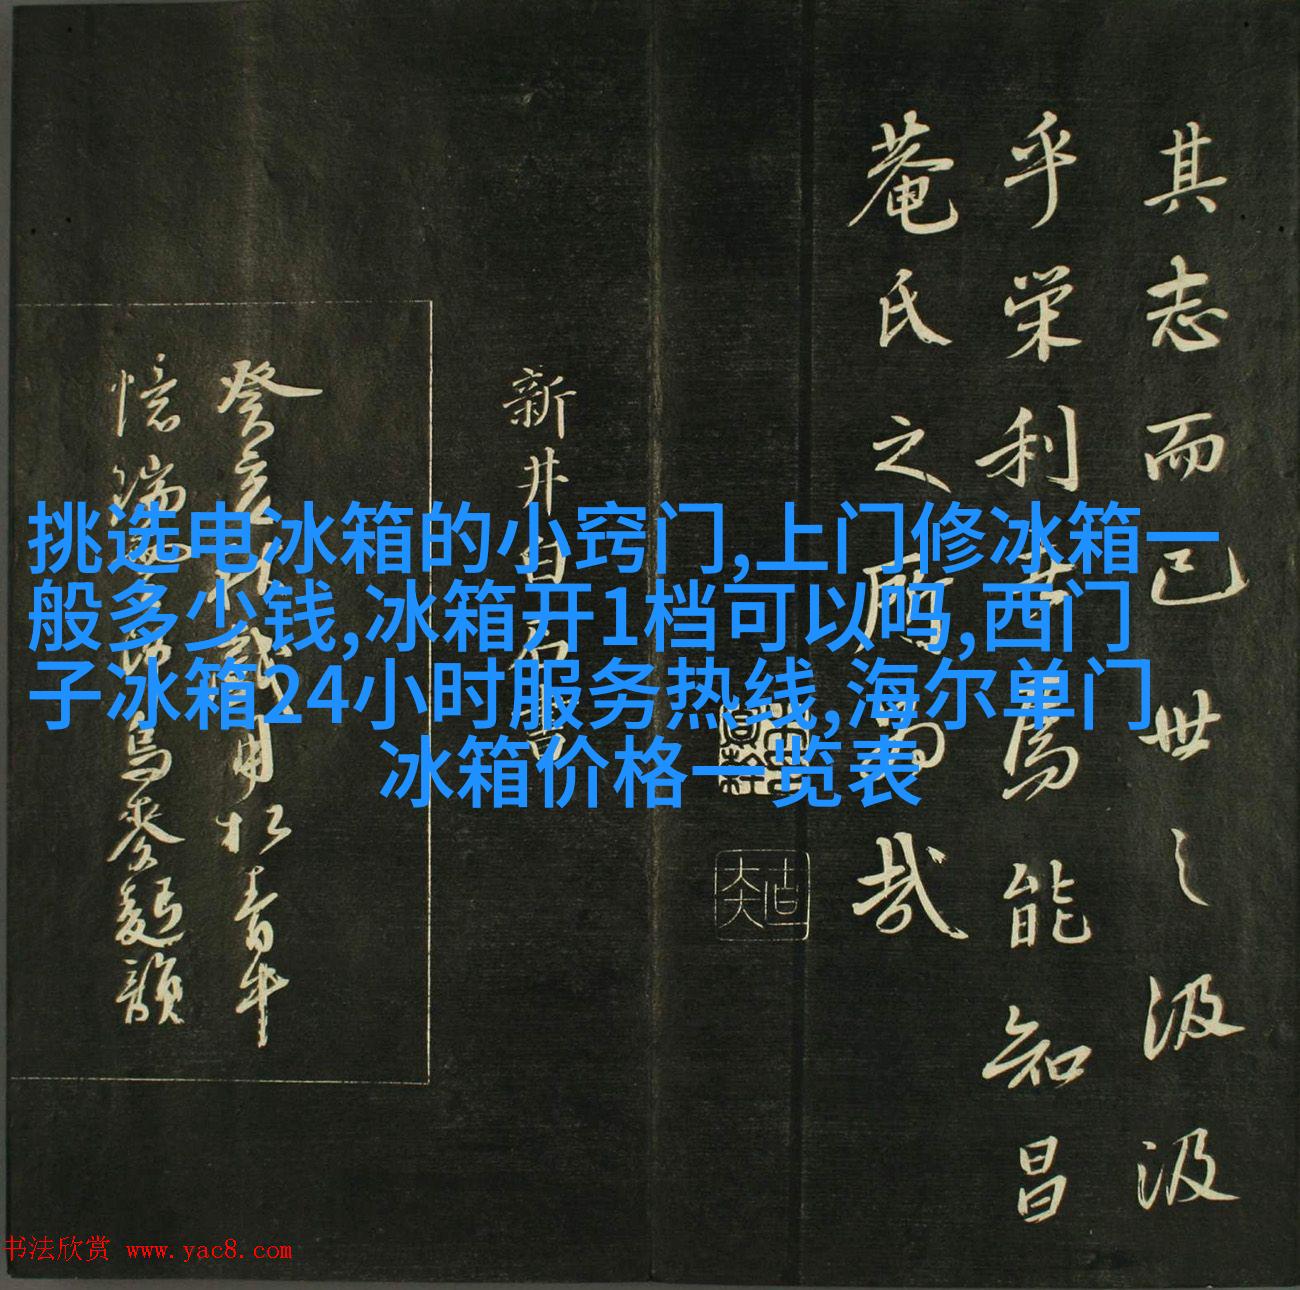 其志而已世之汲汲
乎栄利者焉能知昌
菴氏之所為哉
新井白石書
癸亥秋試用松青牛
挑选电冰箱的小窍门,上门修冰箱一
般多少钱,冰箱开1档可以吗,西门
子冰箱24小时服务热线,海尔单门
冰箱价格一览表
书法欣赏 www.yac8.com